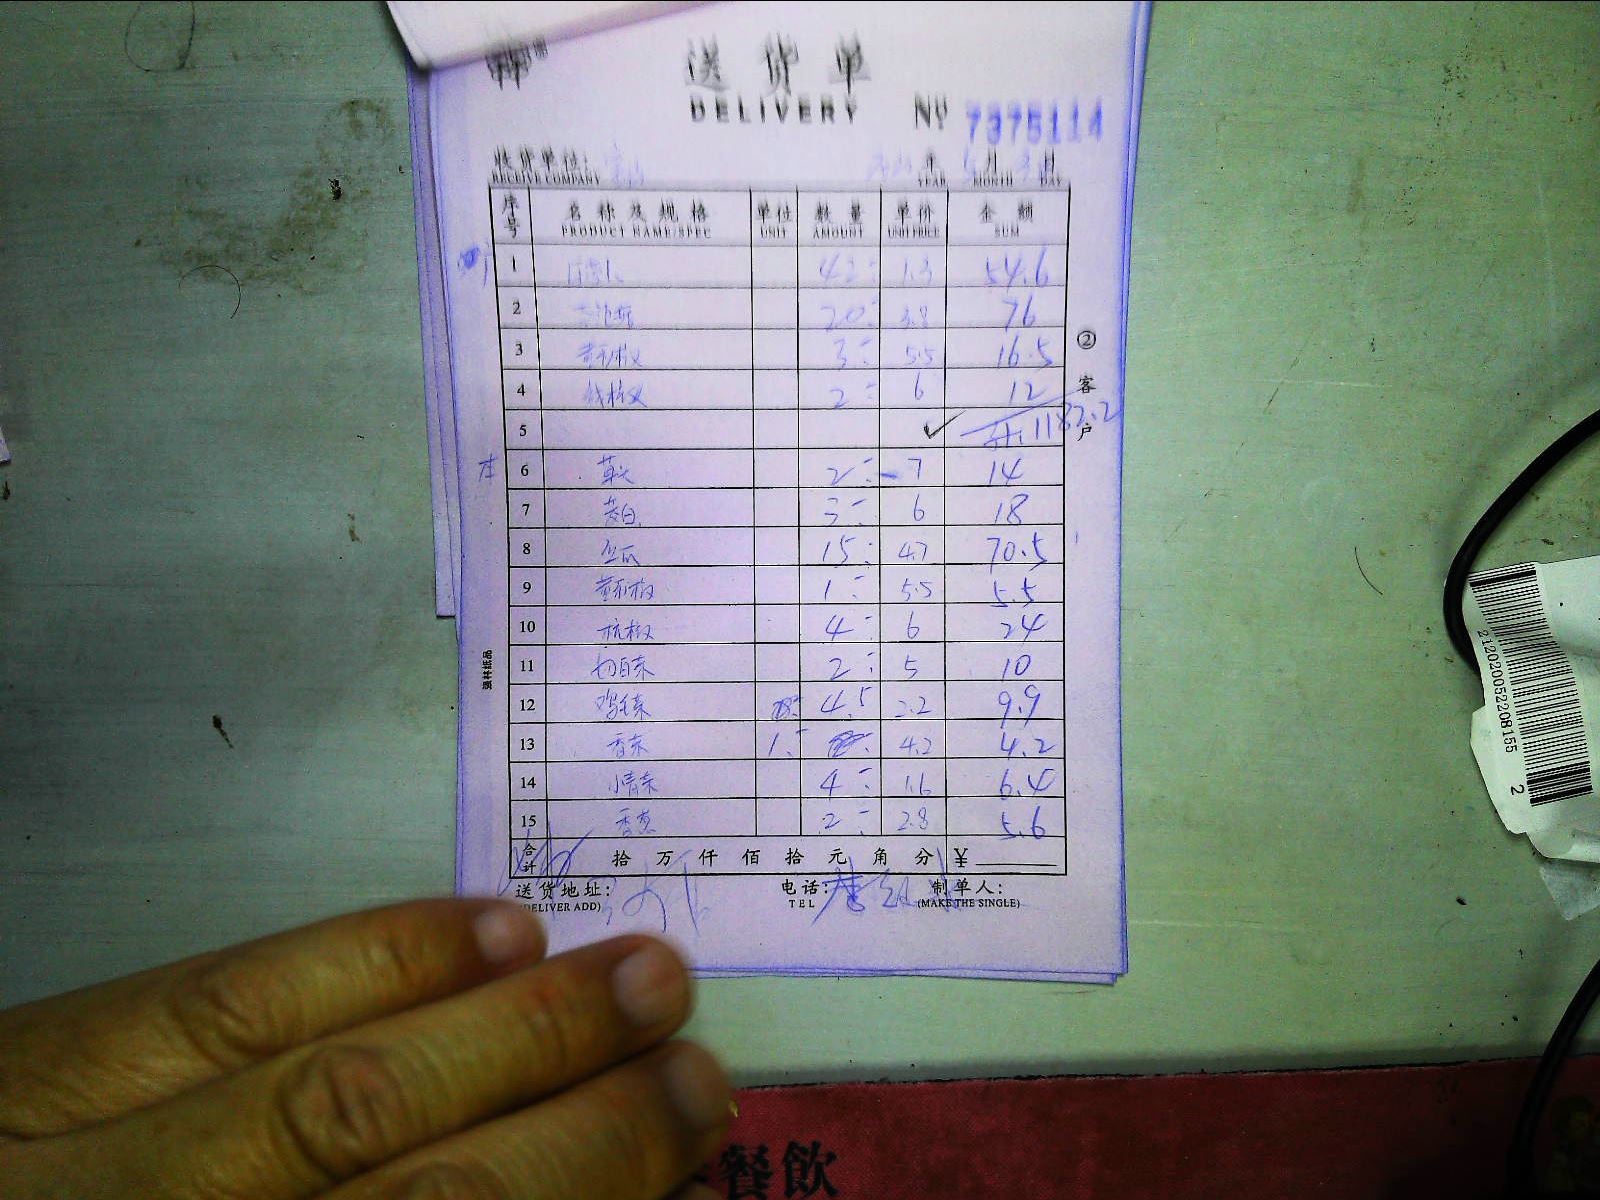 送货单
DELIVERY
№ 7375114
收货单位: 年 月 日
RECEIVE COMPANY YEAR MONTH DAY
序号 名称及规格 单位 数量 单价 金额
PRODUCT NAME/SPEC UNIT AMOUNT UNIT PRICE SUM
1 42 1.3 54.6
2 20 3.8 76
3 黄瓜椒 3 5.5 16.5
4 线椒 2 6 12
5 计1182.2
6 2 7 14
7 茭白 3 6 18
8 丝瓜 15 4.7 70.5
9 1 5.5 5.5
10 杭椒 4 6 24
11 2 5 10
12 鸡毛菜 4.5 2.2 9.9
13 香菜 1 4.2 4.2
14 小青菜 4 1.6 6.4
15 香葱 2 2.8 5.6
合计 拾 万 仟 佰 拾 元 角 分 ¥
送货地址: 电话: 制单人:
(DELIVER ADD) TEL (MAKE THE SINGLE)
②客户
强林纸品
212020052208155
2
餐飲